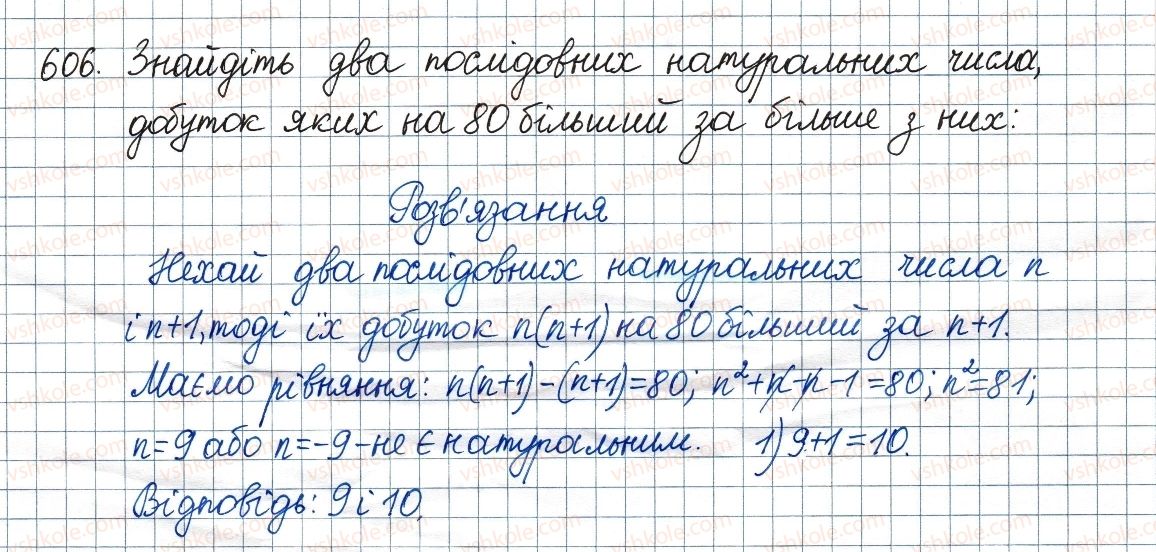 606. Знайдіть два послідовних натуральних числа,
добуток яких на 80 більший за більше з них:
Розв'язання
Нехай два послідовних натуральних числа n
і n+1, тоді їх добуток n(n+1) на 80 більший за n+1.
Маємо рівняння: n(n+1)-(n+1)=80; n²+n-n-1=80; n²=81;
n=9 або n=-9 - не є натуральним. 1) 9+1=10.
Відповідь: 9 і 10.